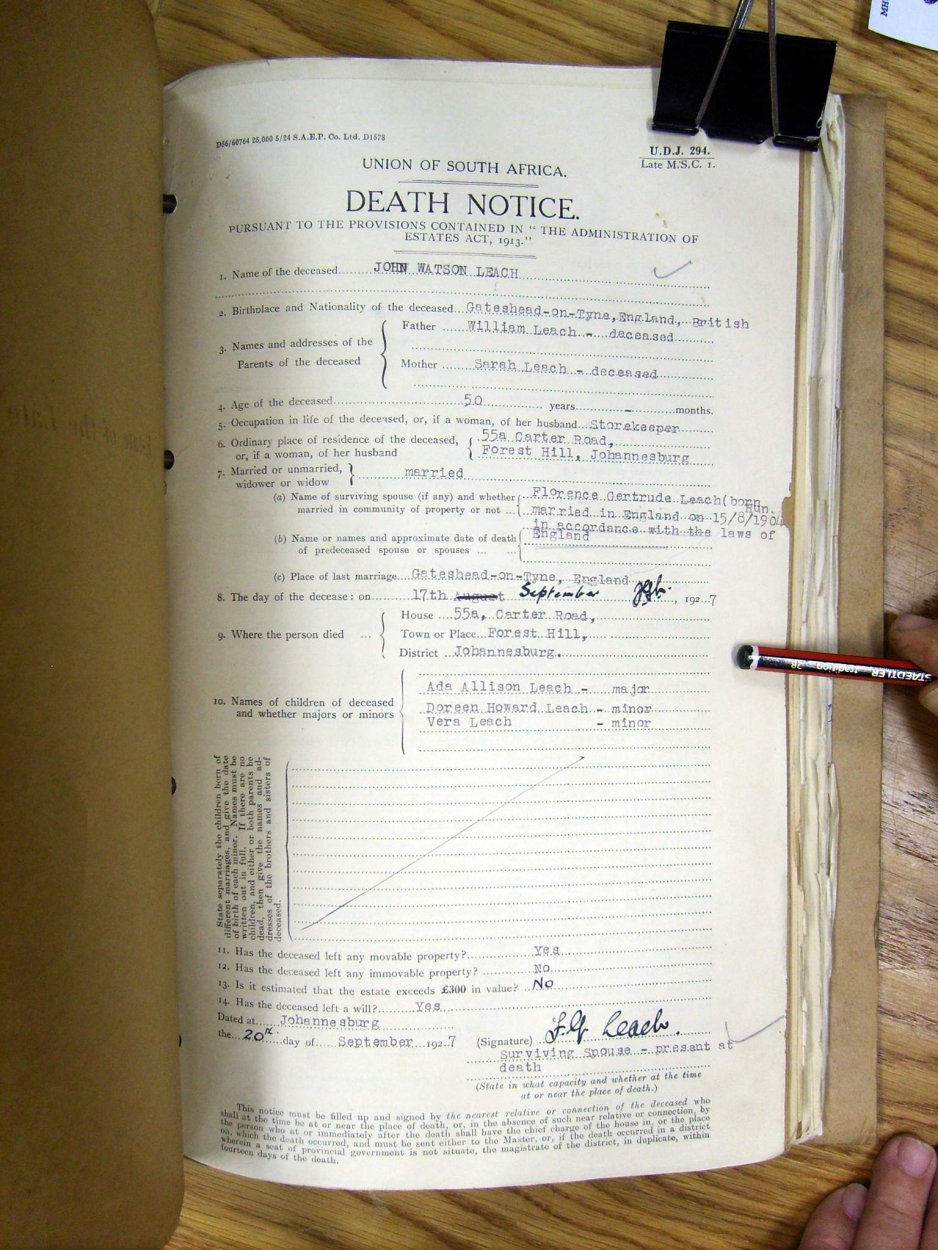 D56/60764 25,000 5/24 S.A.E.P. Co. Ltd. D1578
U.D.J. 294.
Late M.S.C. 1.
UNION OF SOUTH AFRICA.
DEATH NOTICE.
PURSUANT TO THE PROVISIONS CONTAINED IN " THE ADMINISTRATION OF
ESTATES ACT, 1913."
1. Name of the deceased JOHN WATSON LEACH
2. Birthplace and Nationality of the deceased Gateshead-on-Tyne, England, British
3. Names and addresses of the Parents of the deceased
Father William Leach - deceased
Mother Sarah Leach - deceased
4. Age of the deceased 50 years - months.
5. Occupation in life of the deceased, or, if a woman, of her husband Storekeeper
6. Ordinary place of residence of the deceased, 55a Carter Road,
or, if a woman, of her husband Forest Hill, Johannesburg
7. Married or unmarried, widower or widow married
(a) Name of surviving spouse (if any) and whether Florence Gertrude Leach (born
married in community of property or not ... married in England on 15/8/1904
Hun.
in accordance with the laws of
England
(b) Name or names and approximate date of death
of predeceased spouse or spouses ... ...
(c) Place of last marriage Gateshead-on-Tyne, England
8. The day of the decease: on 17th August September , 1927
9. Where the person died ...
House 55a, Carter Road,
Town or Place Forest Hill,
District Johannesburg.
10. Names of children of deceased
and whether majors or minors
Ada Allison Leach - major
Doreen Howard Leach - minor
Vera Leach - minor
State separately the children born of
different marriages, and give the date
of birth of each minor. Names must be
written out in full. If there are no
children, and either or both parents be
dead, then give the names and ad-
dresses of the brothers and sisters of
deceased.
11. Has the deceased left any movable property? Yes
12. Has the deceased left any immovable property? No
13. Is it estimated that the estate exceeds £300 in value? No
14. Has the deceased left a will? Yes
Dated at Johannesburg
the 20th day of September 1927
(Signature) F.G. Leach.
Surviving Spouse - present at
death
(State in what capacity and whether at the time
at or near the place of death.)
This notice must be filled up and signed by the nearest relative or connection of the deceased who
shall at the time be at or near the place of death, or, in the absence of such near relative or connection, by
the person who at or immediately after the death shall have the chief charge of the house in, or the place
on, which the death occurred, and must be sent either to the Master, or, if the death occurred in a district
wherein a seat of provincial government is not situate, the magistrate of the district, in duplicate, within
fourteen days of the death.
STAEDTLER tradition 2B